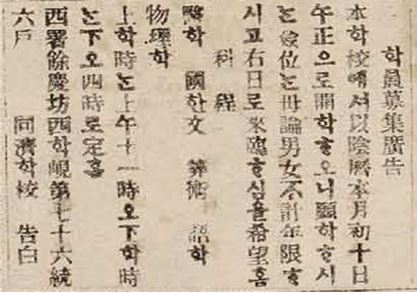 學員募集廣告
本學校에셔以陰曆本月初十日
午正으로開學ᄒᆞ오니願學ᄒᆞ시
는僉位는毋論男女不計年限ᄒᆞ
시고右日로來臨ᄒᆞ심을希望홈
科程
醫學 國한文 算術 語學
物理學
上學時는上午十一時오下學時
는下오四時로定홈
西署餘慶坊西學峴第七十六統
六戶 同濟學校 告白